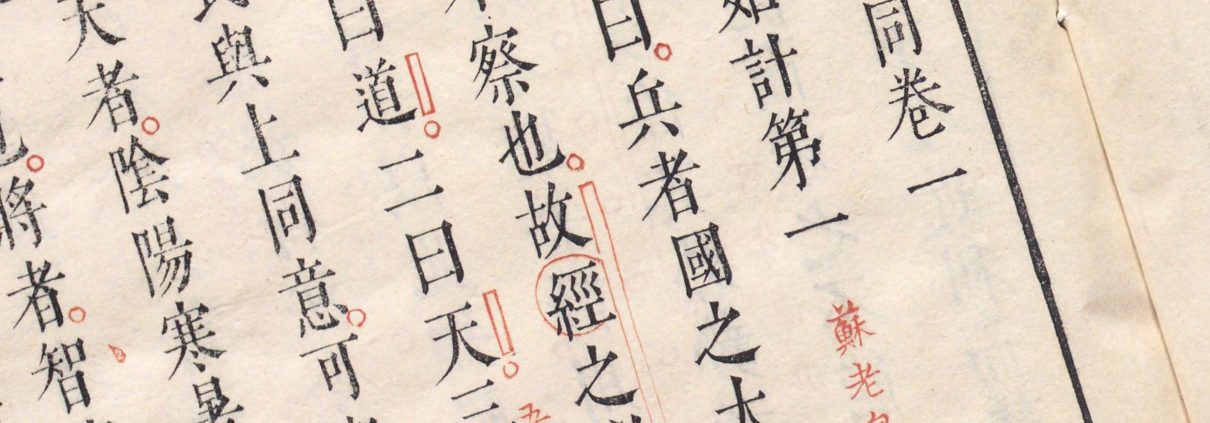 同卷一
始計第一
蘇老
曰。兵者國之大
察也。故經之
曰道。二曰天。三
與上同意。可
天者。陰陽寒暑
也。將者。智